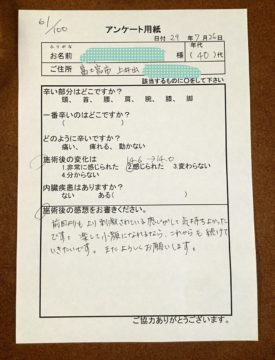 61/100
アンケート用紙
日付 29 年 7月26日
ふりがな
お名前 様
年代
(40)代
ご住所 富士宮市 上井出
該当するものに○をして下さい
辛い部分はどこですか?
頭、首、腰、肩、腕、膝、脚
一番辛いのはどこですか?
( )
どのように辛いですか?
痛い、痺れる、動かない
施術後の変化は 14.6→14.0
1.非常に感じられた ②感じられた 3.変わらない
4.分からない
内臓疾患はありますか?
ない ある( )
施術後の感想をお書きください。
前回よりも より刺激されている感じがして気持ちよかった
です。楽して小顔になれるなら、これからも続けて
いきたいです。またよろしくお願いします。
ご協力ありがとうございます。